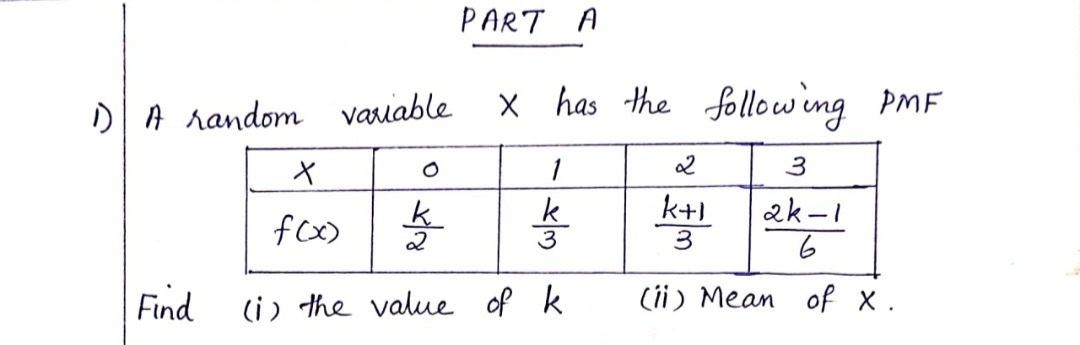 PART A
1) A random variable X has the following PMF
X 0 1 2 3
f(x) k/2 k/3 k+1/3 2k-1/6
Find (i) the value of k (ii) Mean of X.